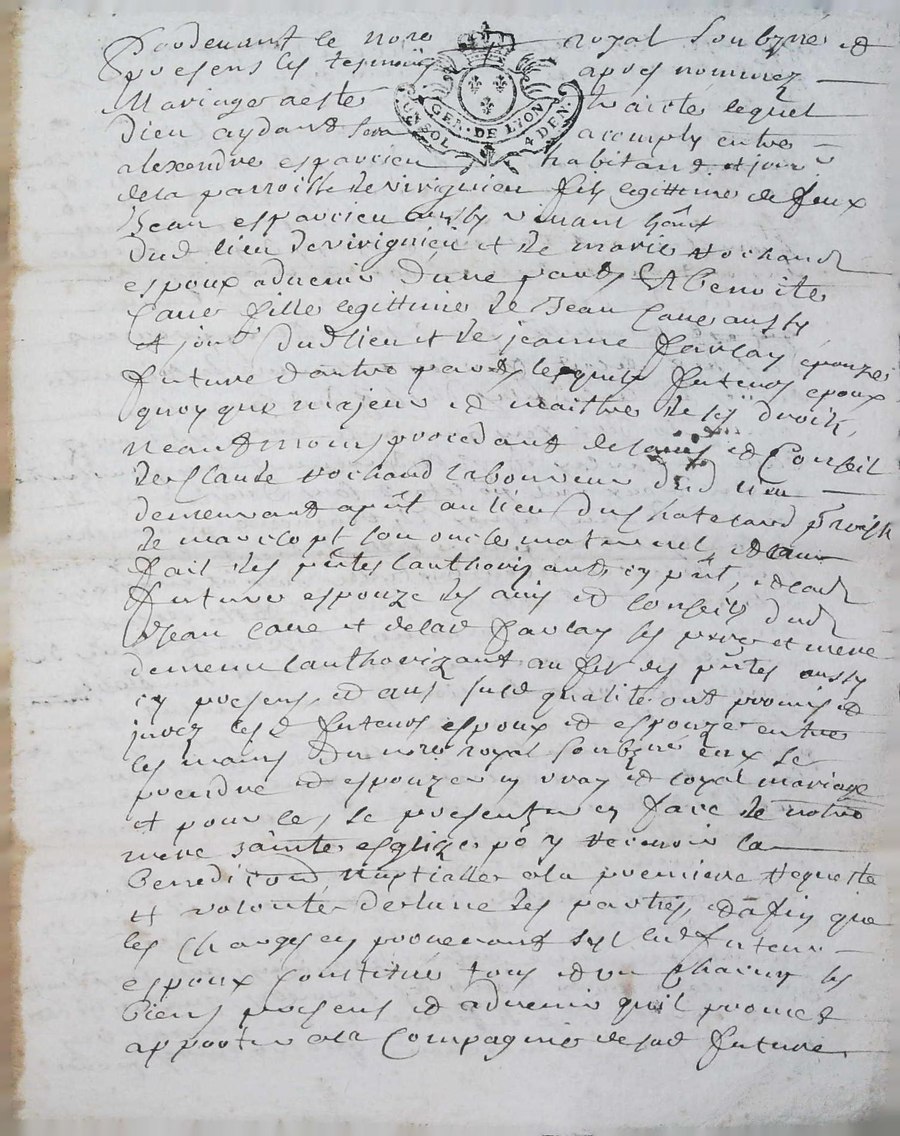 Pardevant le no.re royal soubzné et
presens les tesmoins apres nommez
GEN. DE LION
UN SOL 4 DEN.
Mariage a esté traicté lequel
Dieu aydant sera accomply entre
alexandre esparcieu habitant et jour.
de la parroisse de virignieu fils legittime de feux
Jean esparcieu aussy vivant
dud lieu de virignieu et de marie Rochand
espoux advenir d'une part, Et Benoite
Cave fille legittime de Jean Cave aussy
et de jeanne Favlay épouze
future d'autre part, lesquels futeurs époux
quoyque majeurs et maittre de ses droits,
neantmoins procedant de l'avis et Conseil
de Claude Rochand laboureur dud lieu
demeurant a pnt au lieu du chatelard
de marclopt son oncle maternel,
fait des pntes l'authorizant cy pnt, et lad
future espouze des avis et conseils dud
Jean Cave et de lad Favlay ses pere et mere
l'authorizant au fait des pntes aussy
cy presens, et aus susd qualité ont promis et
jurez lesd futeurs espoux et espouze entre
les mains du no.re royal soubzné eux se
prendre et espouzer en vray et loyal mariage
et pour ce, se presenter en face de notre
mere sainte esglize po y recevoir la
Benediction Nuptialle a la premiere Requeste
et volonté de l'une des parties, et afin que
les Charges en proviennent led futeur
espoux constitué tous et un chacun ses
Biens presens et advenir qu'il promet
apporter a la Compagnie de sad future